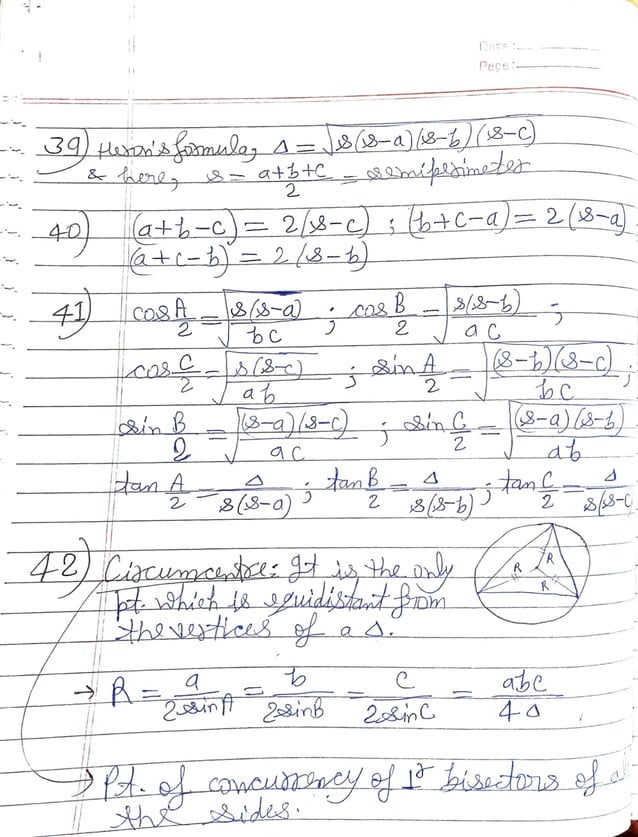 Date :
Page :
39) Heron's formula, Δ = √s(s-a)(s-b)(s-c)
& here, s = a+b+c/2 = semiperimeter
40) (a+b-c) = 2(s-c) ; (b+c-a) = 2(s-a)
(a+c-b) = 2(s-b)
41) cos A/2 = √s(s-a)/bc ; cos B/2 = √s(s-b)/ac ;
cos C/2 = √s(s-c)/ab ; sin A/2 = √(s-b)(s-c)/bc ;
sin B/2 = √(s-a)(s-c)/ac ; sin C/2 = √(s-a)(s-b)/ab
tan A/2 = Δ/s(s-a) ; tan B/2 = Δ/s(s-b) ; tan C/2 = Δ/s(s-c
42) Circumcentre: It is the only
pt. which is equidistant from
the vertices of a Δ.
R R R
→ R = a/2sinA = b/2sinB = c/2sinC = abc/4Δ
→ Pt. of concurrency of 1r bisectors of
the sides.